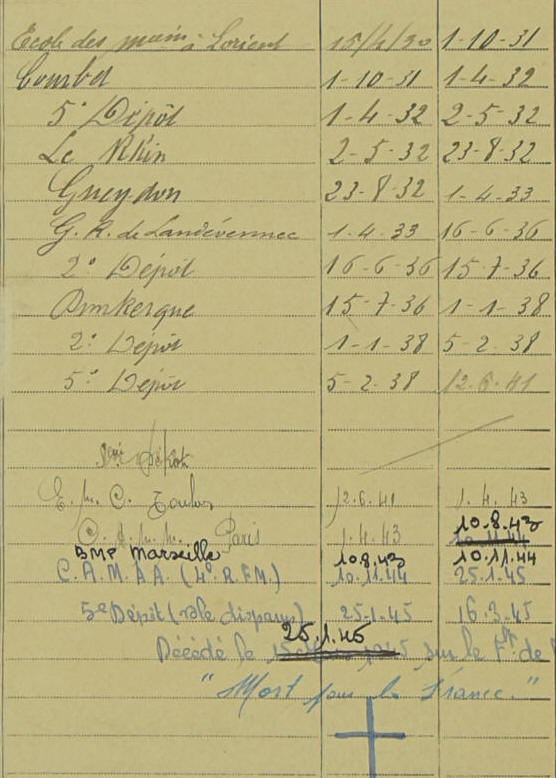 Ecole des à Lorient 15/4/30 1-10-31
Courbet 1-10-31 1-4-32
5e Dépôt 1-4-32 2-5-32
Le Rhin 2-5-32 23-8-32
Gueydon 23-8-32 1-4-33
G. R. de Landévennec 1-4-33 16-6-36
2e Dépôt 16-6-36 15-7-36
Dunkerque 15-7-36 1-1-38
2e Dépôt 1-1-38 5-2-38
5e Dépôt 5-2-38 12-6-41
Dépôt
E. M. C. Toulon 12.6.41 1.4.43
10.8.43
Paris 1.4.43 10.11.44
BMP Marseille 10.8.43 10.11.44
C.A.M.A.A. (4e R.F.M.) 10.11.44 25.1.45
5e Dépôt (rôle disparus) 25.1.45 16.3.45
25.1.45
Décédé le sur le Ft. de
"Mort pour la France."